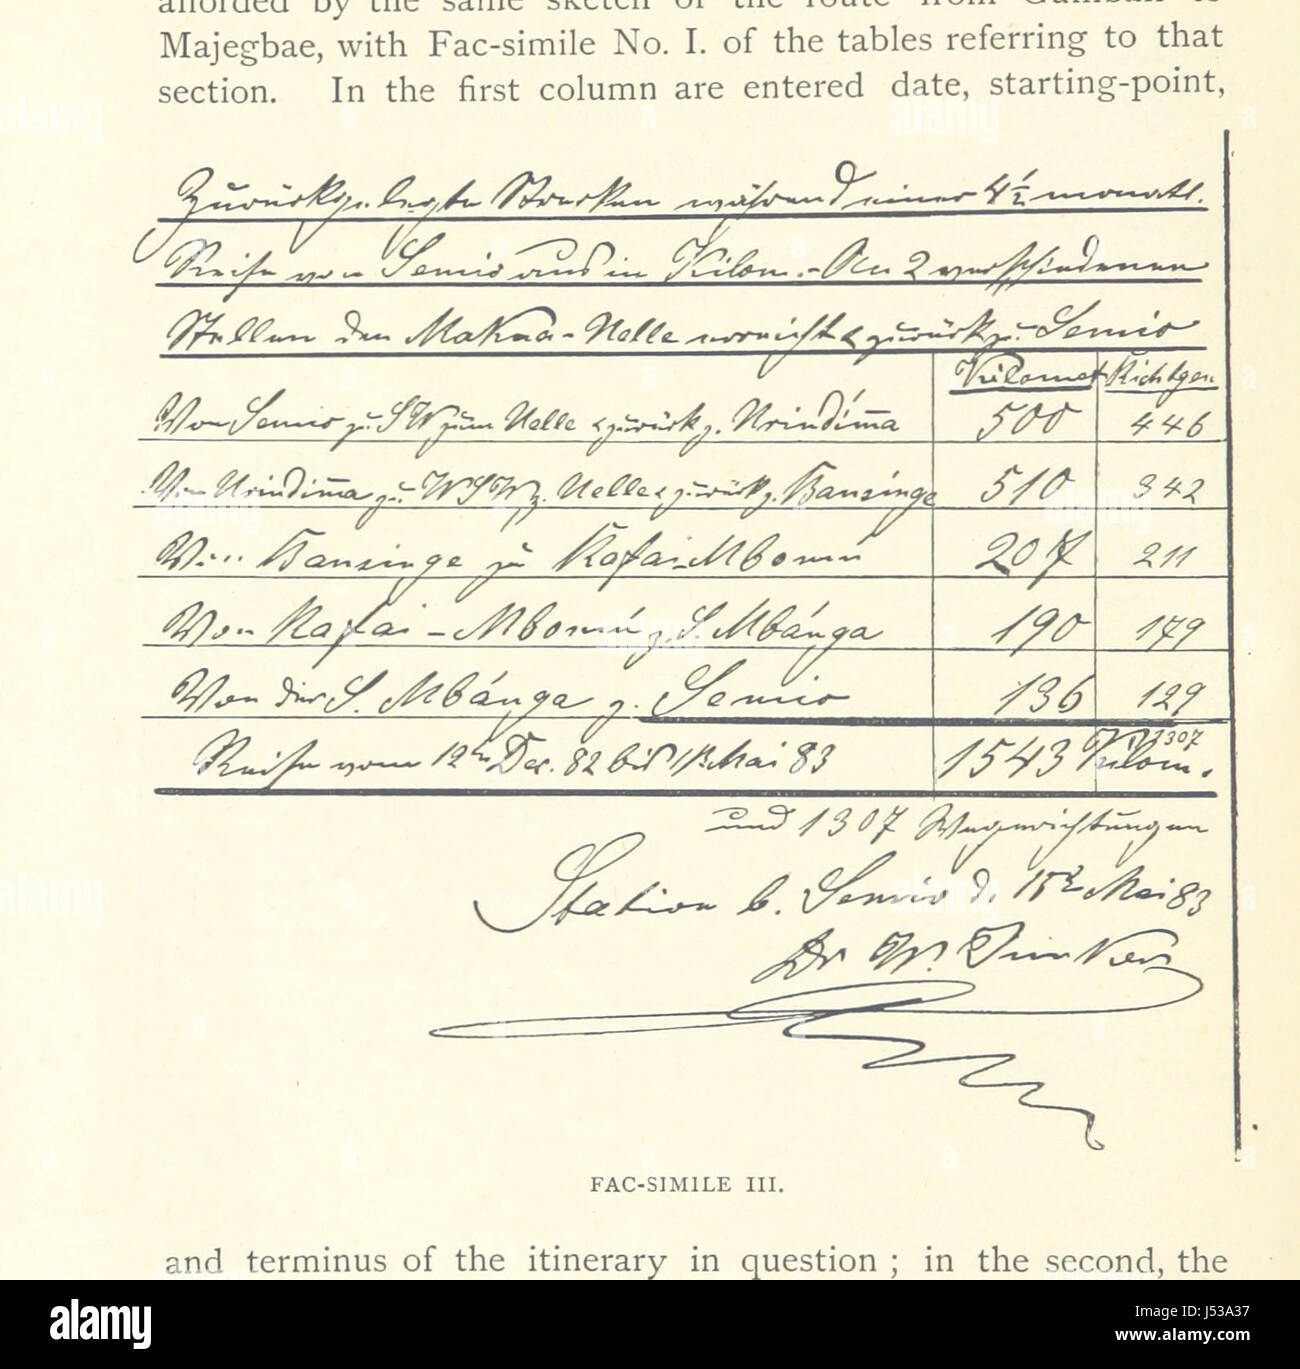 afforded by the same sketch of the route from Gumbali to
Majegbae, with Fac-simile No. I. of the tables referring to that
section. In the first column are entered date, starting-point,
Zurückgelegte Strecken während einer 4½ monatl.
Reise von Semio aus in Kilom. - An 2 verschiedenen
Stellen den Makua-Uelle erreicht & zurück zu Semio
Kilomet Richtgen
Von Semio zu SW zum Uelle & zurück z. Nrindimma 500 446
Von Nrindimma zu WSW z. Uelle & zurück z. Bansinge 510 342
Von Bansinge zu Rafai-Mbomu 207 211
Von Rafai-Mbomu z. S. Mbánga 190 179
Von der S. Mbánga z. Semio 136 129
Reise vom 12ten Dec. 82 bis Mai 83 1543 Kilom. 1307
und 1307 Wegerichtungen
Station b. Semio d. 15t Mai 83
Dr W. Junker
FAC-SIMILE III.
and terminus of the itinerary in question ; in the second, the
alamy
Image ID: J53A37
www.alamy.com